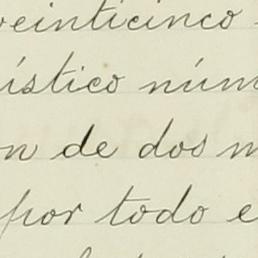 veinticinco
ístico núm
n de dos m
por todo e